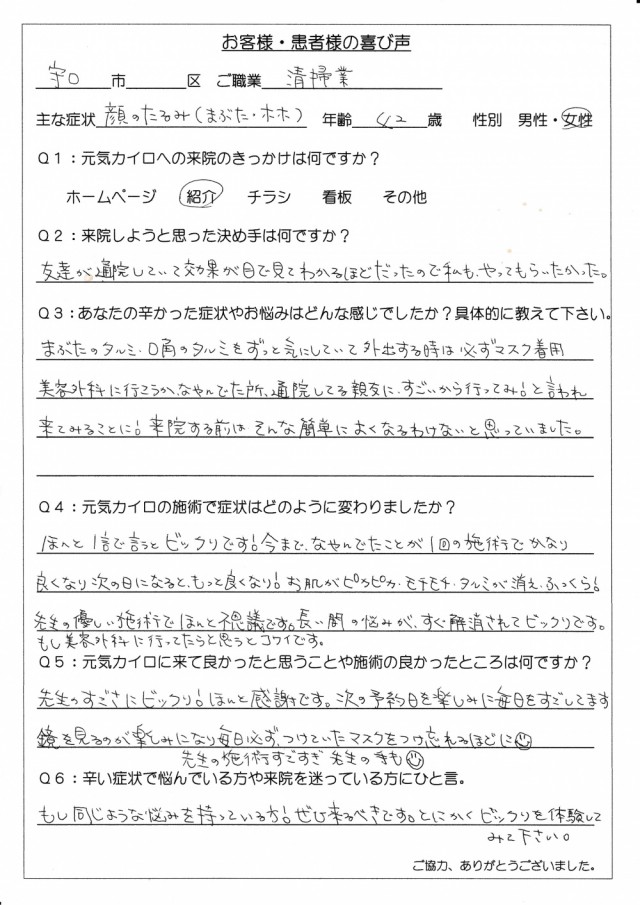 お客様・患者様の喜び声
守口 市 区 ご職業 清掃業
主な症状 顔のたるみ(まぶた・ホホ) 年齢 42 歳 性別 男性・女性
Q1:元気カイロへの来院のきっかけは何ですか?
ホームページ 紹介 チラシ 看板 その他
Q2:来院しようと思った決め手は何ですか?
友達が通院していて効果が目で見てわかるほどだったので私も、やってもらいたかった。
Q3:あなたの辛かった症状やお悩みはどんな感じでしたか?具体的に教えて下さい。
まぶたのタルミ・口角のタルミをずっと気にしていて外出する時は必ずマスク着用
美容外科に行こうか、なやんでた所、通院してる親友に、すごいから行ってみ!と言われ
来てみることに!来院する前は そんな簡単によくなるわけないと思っていました。
Q4:元気カイロの施術で症状はどのように変わりましたか?
ほんと1言で言うとビックリです!今まで、なやんでたことが1回の施術でかなり
良くなり次の日になると、もっと良くなり!お肌がピカピカ・モチモチ・タルミが消え、ふっくら!
先生の優しい施術でほんと不思議です。長い間の悩みが、すぐ解消されてビックリです。
もし美容外科に行ってたらと思うとコワイです。
Q5:元気カイロに来て良かったと思うことや施術の良かったところは何ですか?
先生のすごさにビックリ!ほんと感謝です。次の予約日を楽しみに毎日をすごしてます
鏡を見るのが楽しみになり毎日必ず、つけていたマスクをつけ忘れるほどに☺
先生の施術すごすぎ 先生の手も☺
Q6:辛い症状で悩んでいる方や来院を迷っている方にひと言。
もし同じような悩みを持っている方!ぜひ来るべきです。とにかく ビックリを体験して
みて下さい。
ご協力、ありがとうございました。